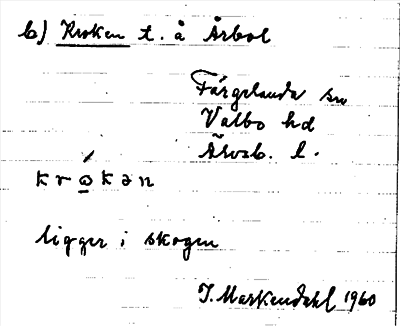 b) Kroken t. å Årbol
Färgelanda sn
Valbo hd
Älvsb. l.
krώ̲kən
ligger i skogen
J. Markendahl 1960